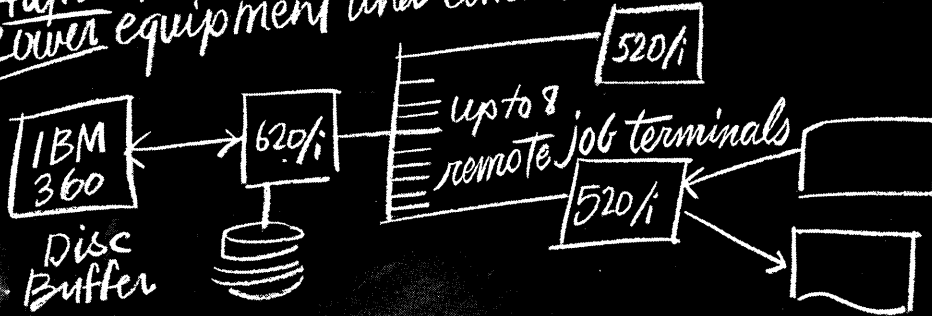 Lower equipment and
520/i
IBM
360
620/i
up to 8
remote job terminals
520/i
Disc
Buffer